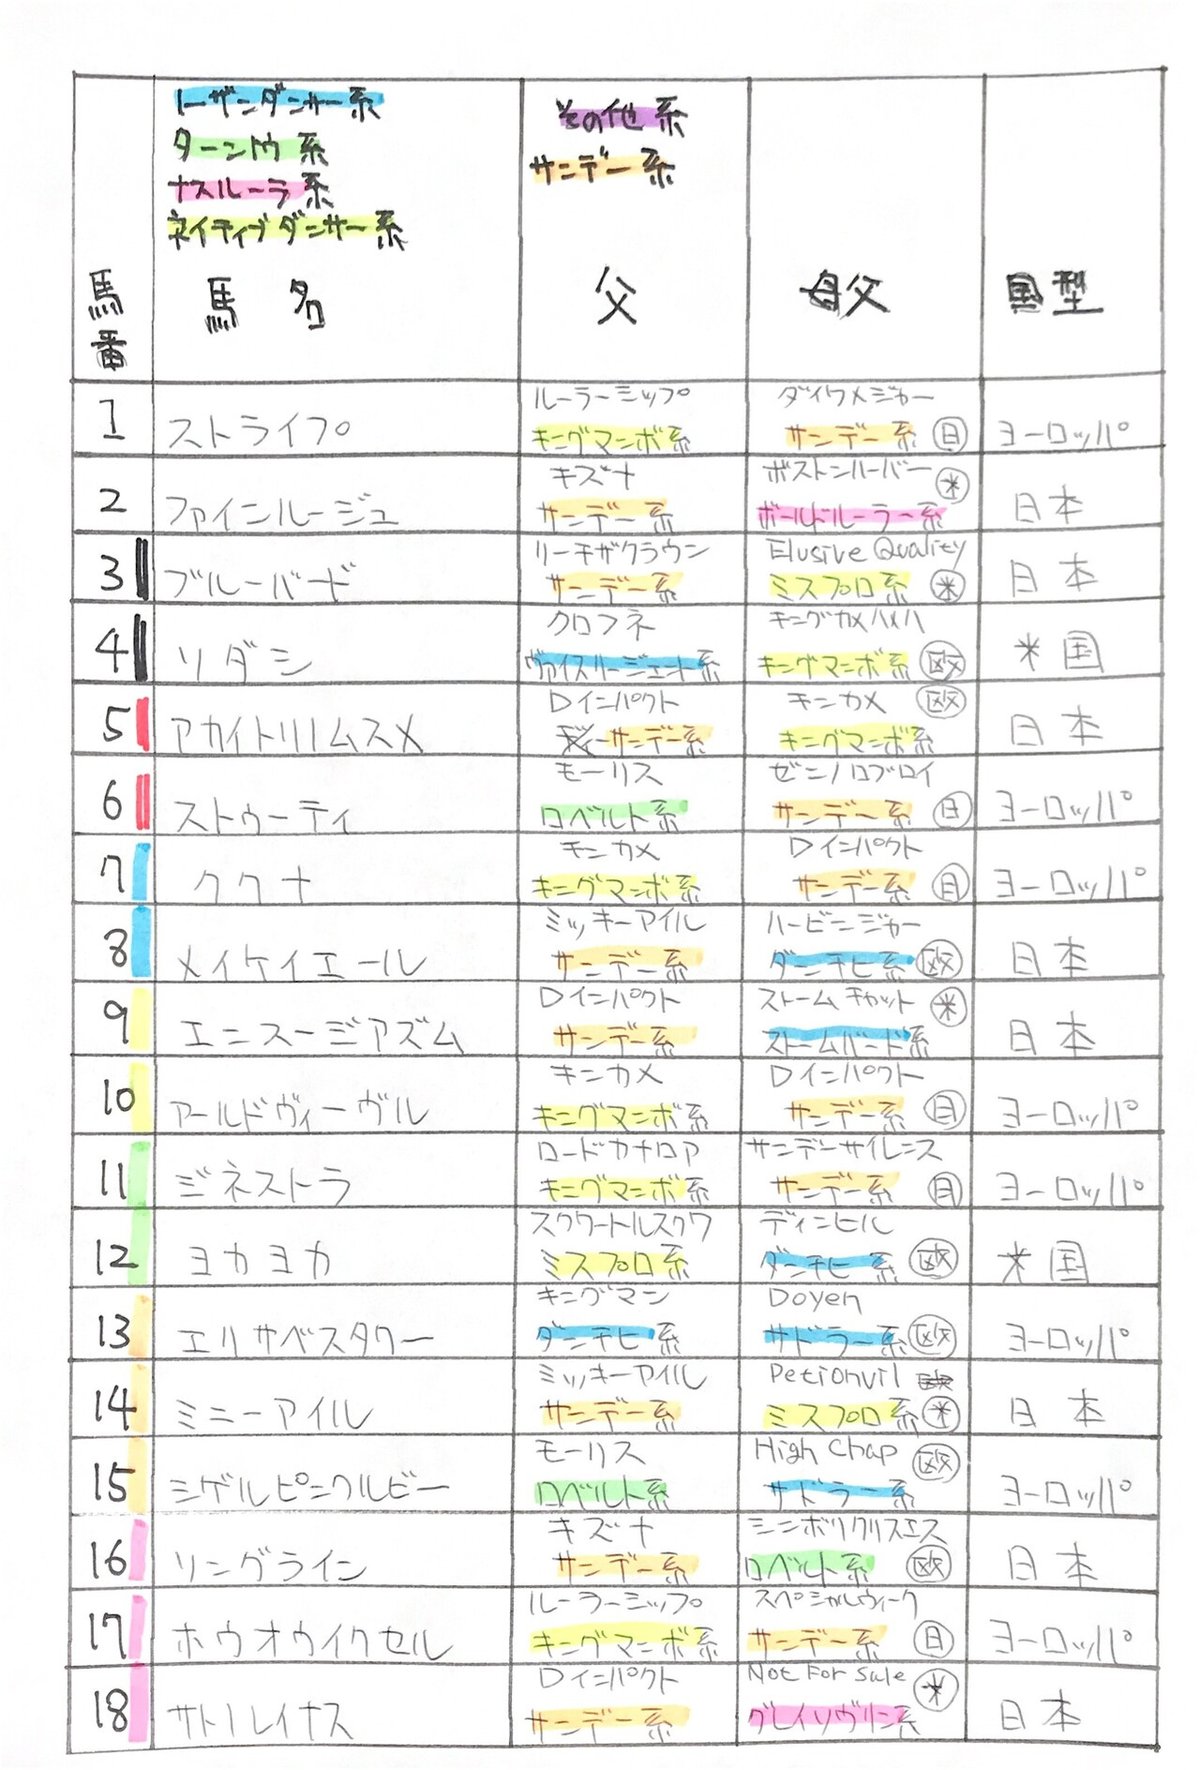 ノーザンダンサー系
ターントウ系
ナスルーラ系
ネイティブダンサー系
その他系
サンデー系
馬番
馬名
父
母父
国型
1
ストライプ
ルーラーシップ
キングマンボ系
ダイワメジャー
サンデー系 日
ヨーロッパ
2
ファインルージュ
キズナ
サンデー系
ボストンハーバー 米
ボールドルーラー系
日本
3
ブルーバード
リーチザクラウン
サンデー系
Elusive Quality
ミスプロ系 米
日本
4
ソダシ
クロフネ
ヴァイスリージェント系
キングカメハメハ
キングマンボ系 欧
米国
5
アカイトリノムスメ
Dインパクト
サンデー系
キンカメ 欧
キングマンボ系
日本
6
ストゥーティ
モーリス
ロベルト系
ゼンノロブロイ
サンデー系 日
ヨーロッパ
7
ククナ
キンカメ
キングマンボ系
Dインパクト
サンデー系 日
ヨーロッパ
8
メイケイエール
ミッキーアイル
サンデー系
ハービンジャー
ダンチヒ系 欧
日本
9
エンスージアズム
Dインパクト
サンデー系
ストームキャット 米
ストームバード系
日本
10
アールドヴィーヴル
キンカメ
キングマンボ系
Dインパクト
サンデー系 日
ヨーロッパ
11
ジネストラ
ロードカナロア
キングマンボ系
サンデーサイレンス
サンデー系 日
ヨーロッパ
12
ヨカヨカ
スクワートルスクワ
ミスプロ系
ディンヒル
ダンチヒ系 欧
米国
13
エリザベスタワー
キングマン
ダンチヒ系
Doyen
サドラー系 欧
ヨーロッパ
14
ミニーアイル
ミッキーアイル
サンデー系
Petionvil
ミスプロ系 米
日本
15
ミゲルピンクルビー
モーリス
ロベルト系
High Chap 欧
サドラー系
ヨーロッパ
16
ソングライン
キズナ
サンデー系
シンボリクリスエス
ロベルト系 欧
日本
17
ホウオウイクセル
ルーラーシップ
キングマンボ系
スペシャルウィーク
サンデー系 日
ヨーロッパ
18
サトノレイナス
Dインパクト
サンデー系
Not For Sale 米
グレイソヴリン系
日本